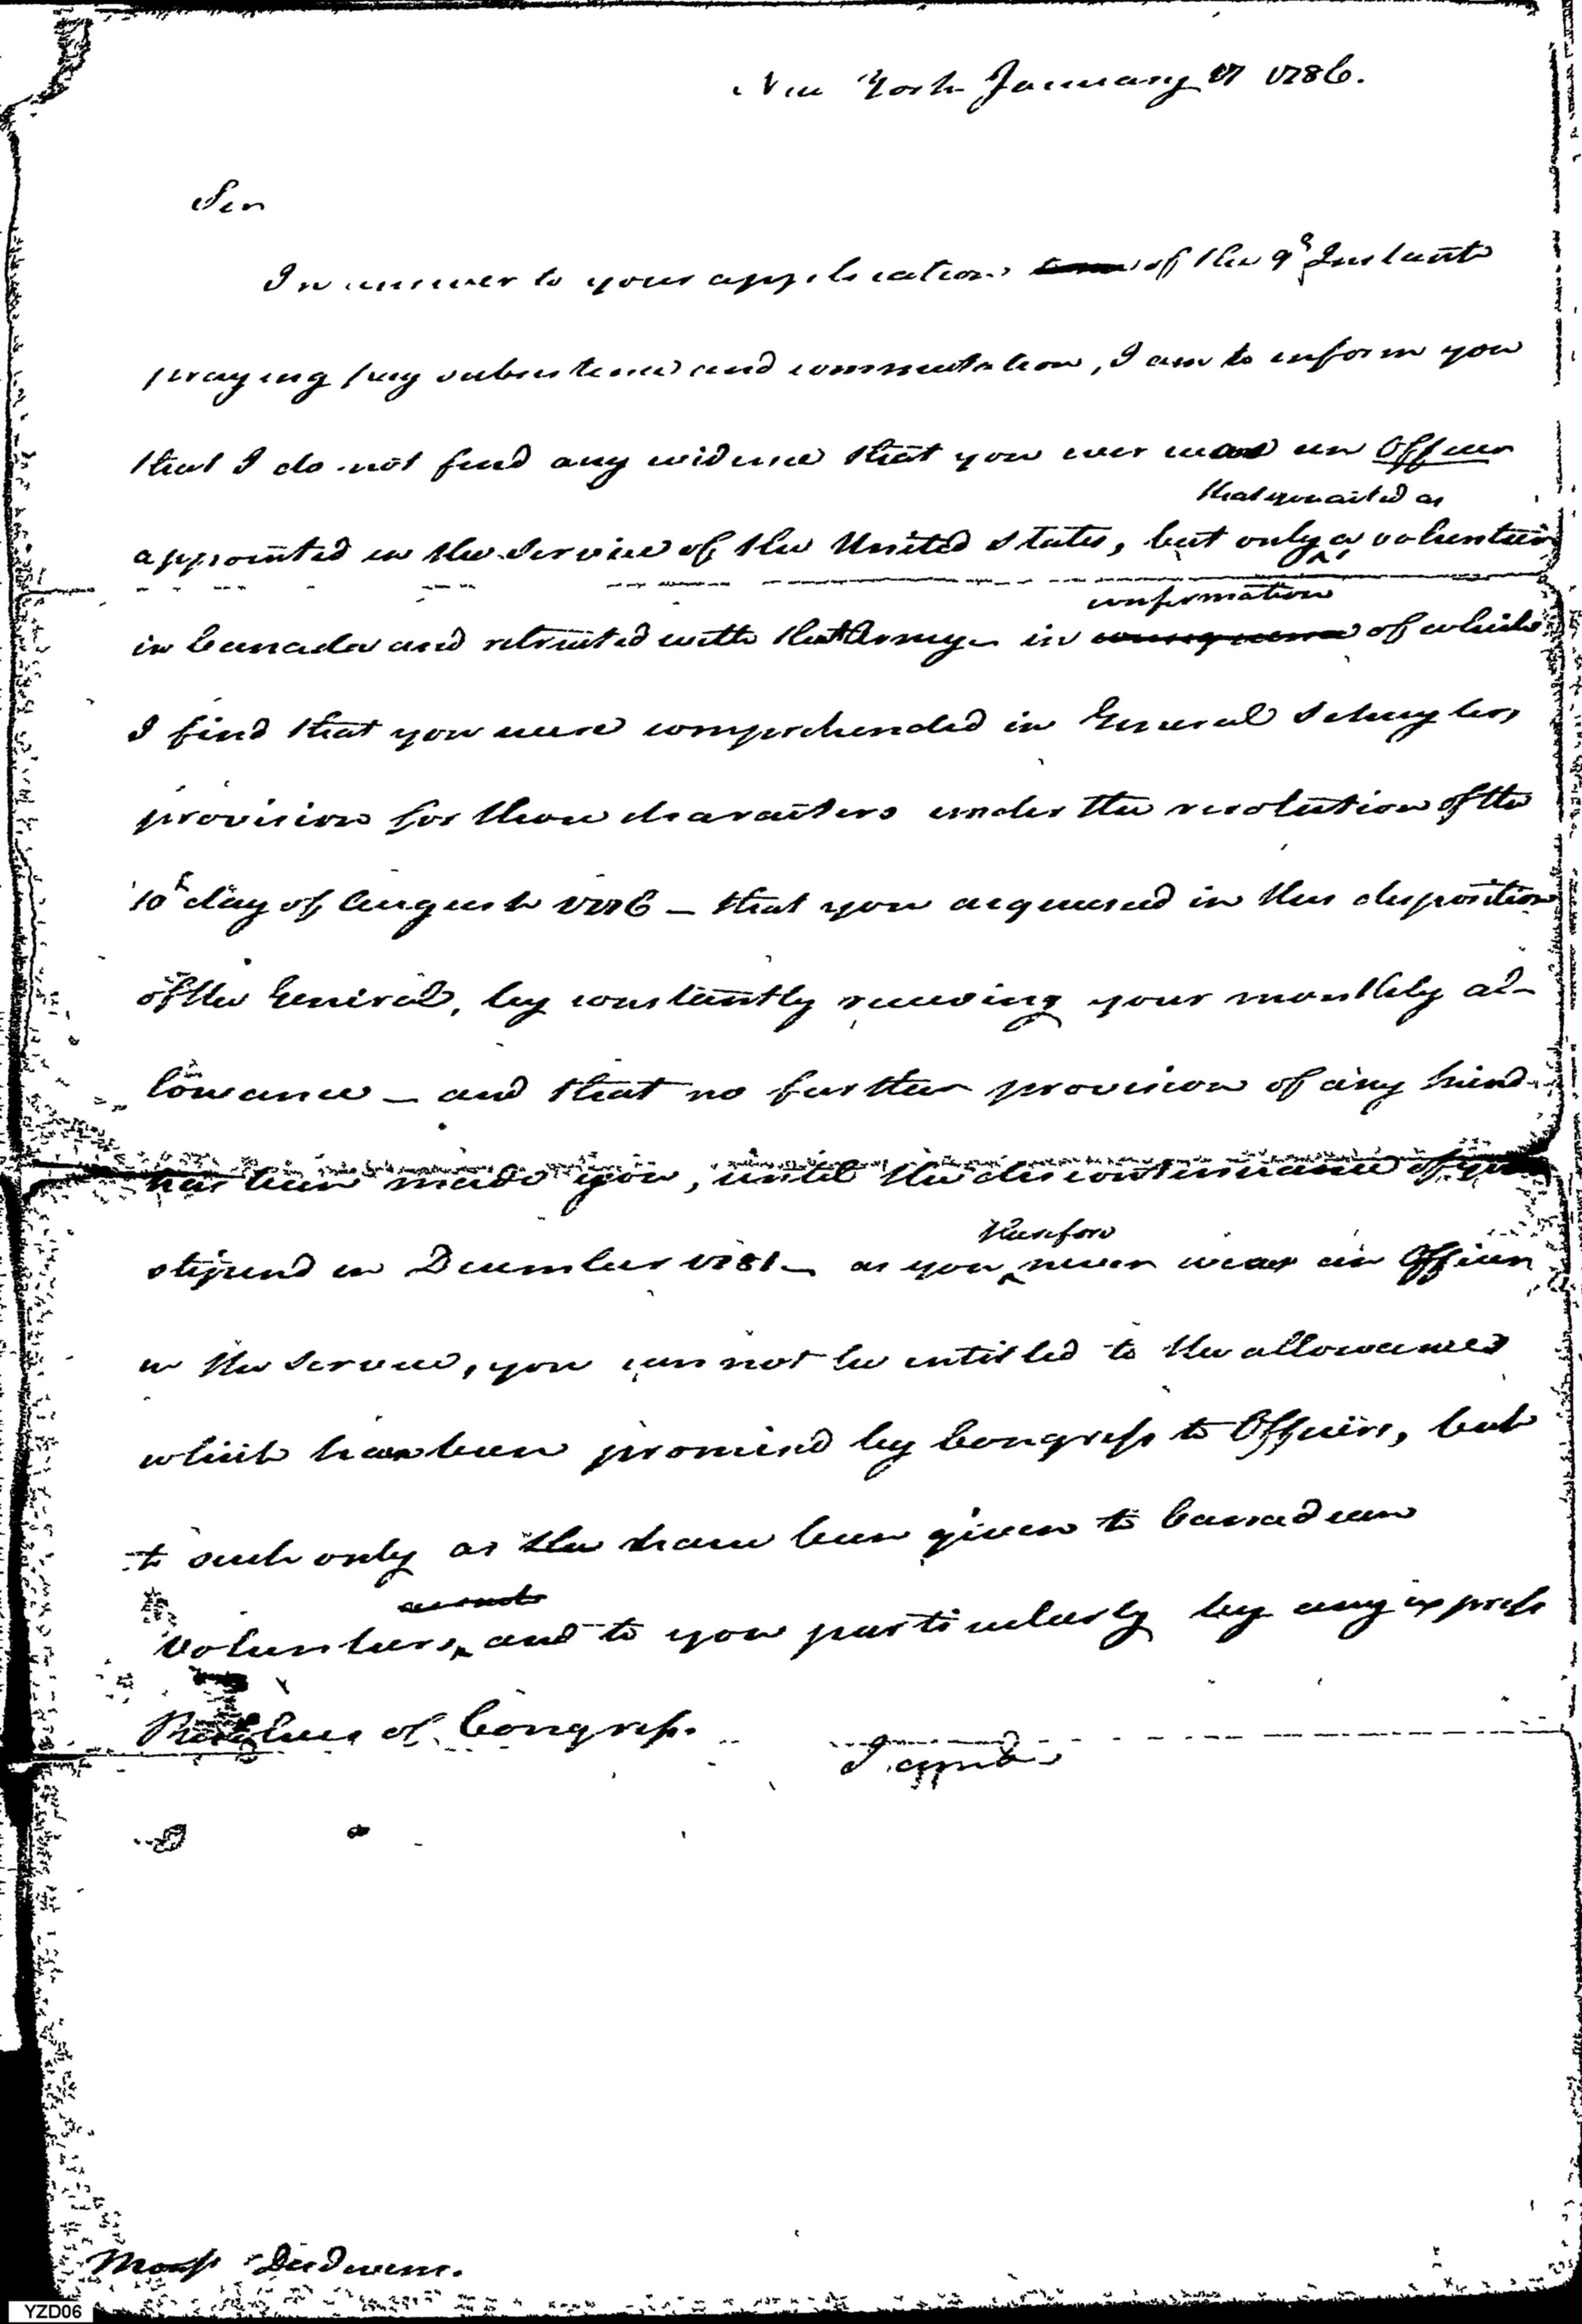 New York January 17 1786.
Sir
In answer to your application of the 9th Instant
praying pay subsistence and commutation, I am to inform you
that I do not find any evidence that you ever was an Officer
that you acted as
appointed in the Service of the United States, but only a volunteer
confirmation
in Canada and retreated with that Army – in consequence of which
I find that you were comprehended in General Schuylers
provision for those characters under the resolution of the
10th day of August 1776 – that you acquiesced in this disposition
of the General, by constantly receiving your monthly al-
lowance – and that no further provision of any kind
has been made you, until the discontinuance of your
therefore
stipend in December 1781 – as you never was an Officer
in the service, you can not be entitled to the allowances
which have been promised by Congress to Officers, but
to such only as the have been given to Canadian
volunteers, and to you particularly by any express
Resolves of Congress.
I am &
Monsr
YZD06